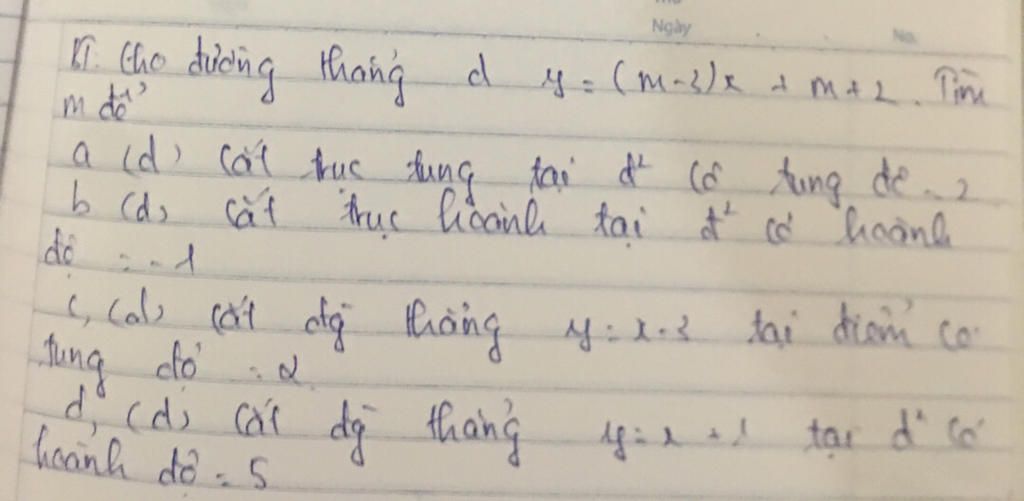 Ngày
No.
VI. Cho đường thẳng d y = (m-3)x + m+2. Tìm
m để
a (d) cắt trục tung tại đ² có tung độ = 2
b (d) cắt trục hoành tại đ² có hoành
độ = -1
c, (d) cắt đg thẳng y = x-3 tại điểm có
tung độ = 2
d, (d) cắt đg thẳng y = x + 1 tại đ² có
hoành độ = 5